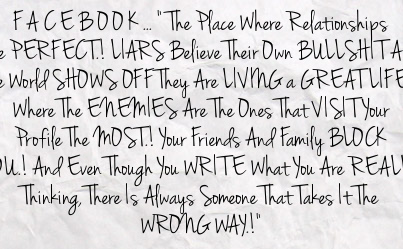 FACEBOOK... "The Place Where Relationships
PERFECT.! LIARS Believe Their Own BULLSHIT
World SHOWS OFF They Are LIVING a GREAT LIFE
Where The ENEMIES Are The Ones That VISIT Your
Profile The MOST.! Your Friends And Family BLOCK
And Even Though You WRITE What You Are
Thinking, There Is Always Someone That Takes It The
WRONG WAY.!"